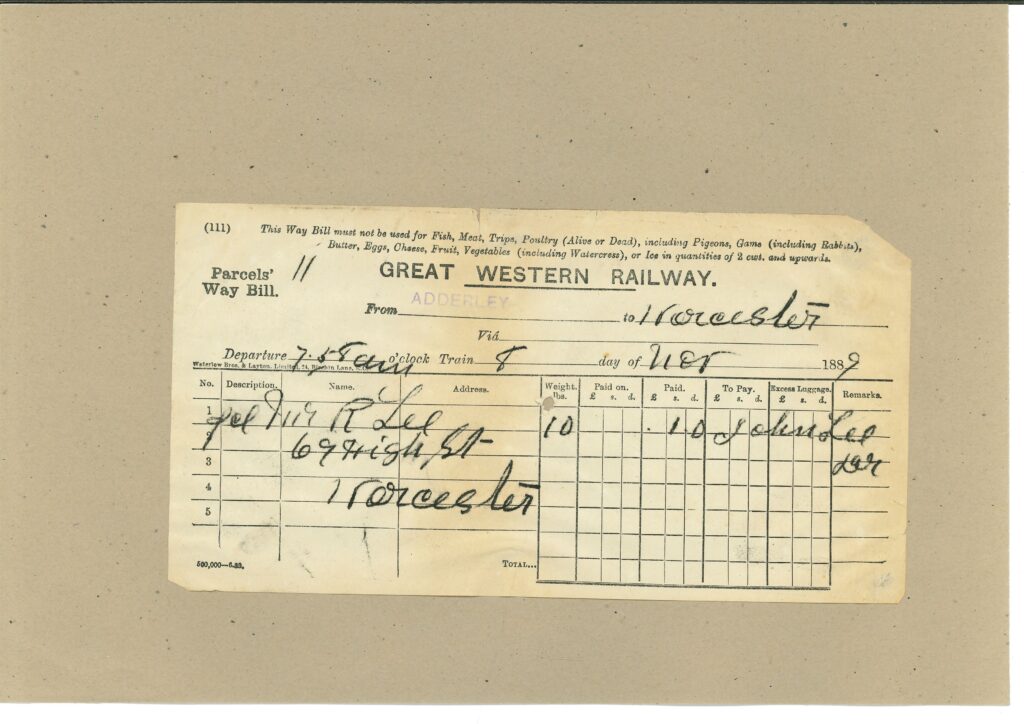 (111) This Way Bill must not be used for Fish, Meat, Trips, Poultry (Alive or Dead), including Pigeons, Game (including Rabbits),
Butter, Eggs, Cheese, Fruit, Vegetables (including Watercress), or Ice in quantities of 2 cwt. and upwards.
Parcels' 11 GREAT WESTERN RAILWAY.
Way Bill.
ADDERLEY
From to Worcester
Via
Departure 7.58 am o'clock Train 8 day of Nov 1889
Waterlow Bros. & Layton, Limited, 24, Birchin Lane,
No. Description. Name. Address. Weight. lbs. Paid on. £ s. d. Paid. £ s. d. To Pay. £ s. d. Excess Luggage. £ s. d. Remarks.
1 pcl Mr R Lee 10 . 1 0 John Lee
2 69 High St
3
4 Worcester
5
500,000—6-89. TOTAL...